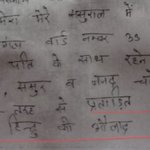 मेरा मेरे ससुराल में
वार्ड नम्बर 39
पति के साथ रहने
ससुर व ननद
तरह से प्रताड़ित
हिन्दु की औलाद